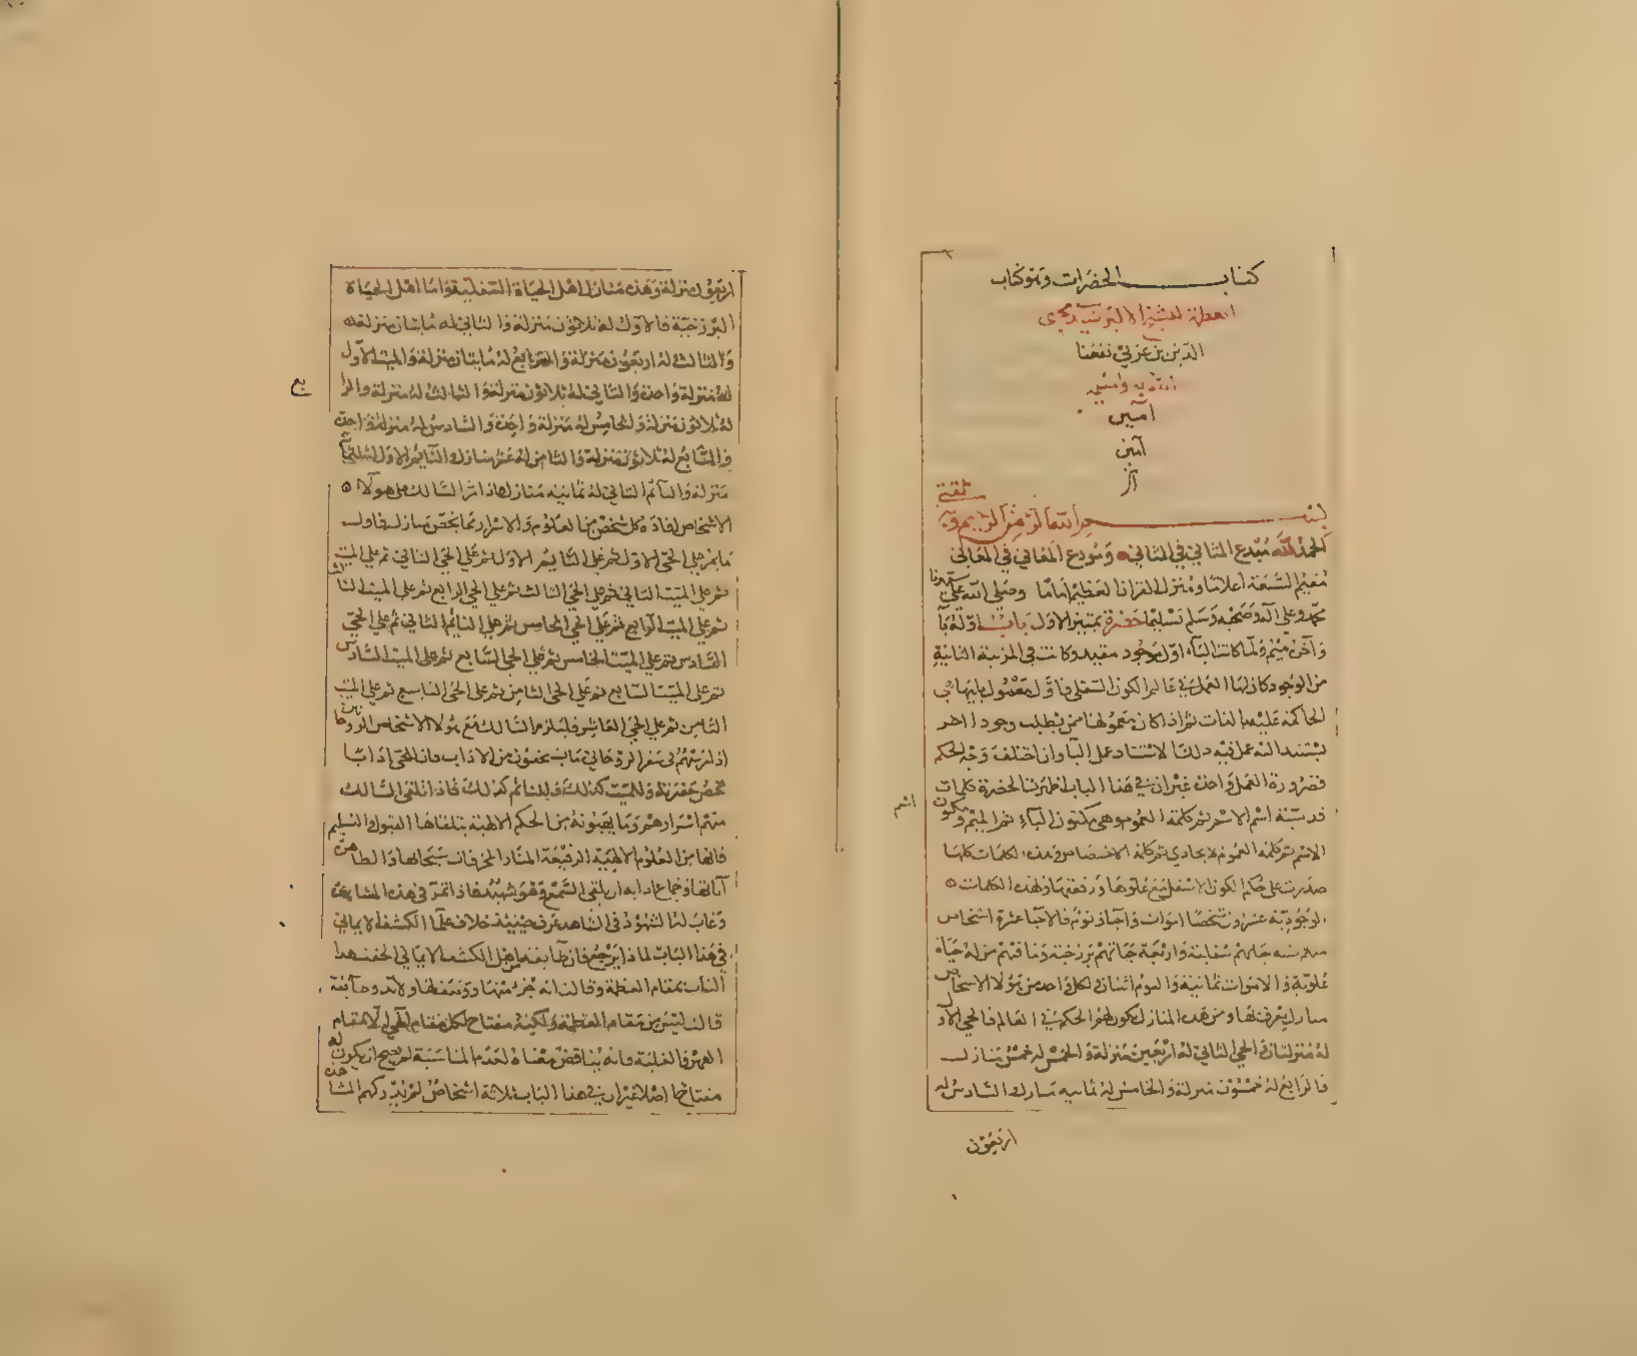 كتاب الحضرات وهو كتاب
العظمة للشيخ الاكبر سيدي محيي
الدين بن عربي نفعنا
الله به وامسه
امين
آمين
ثقتي
بسم الله الرحمن الرحيم وبه
الحمد لله مبدع المثاني في المثاني ومودع المعاني في المعاني
مقيم السبعة اعلاما ومنزل القران العظيم اماما وصلى الله على سيدنا
محمد وعلى آله وصحبه وسلم تسليما حضرة تمييز الاول باب اوله با
وآخره ميم ولما كانت الباء اول موجود مقيد وكانت في المرتبة الثانية
من الوجود كان لها العمل في عالم الكون السفلي فاول معمول يليها هي
الحاكمة عليه بالذات ثم اذا كان معمولها ممن يطلب وجودا اخر
يستند اليه عمل فيه ذلك لاستناد عمل البا وان اختلف وجه الحكم
فضرورة العمل واحدة غير ان في هذا الباب اظهرت الحضرة كلمات
قدسية اسم الاسم ثم كلمة العموم وهي مكنون الباء ثم الميم ومكون
اسم
الاسم ثم كلمة العموم لايجادي ثم كلمة الاختصاص وهذه الكلمات كلها
صدرت على حكم الكون الاسفل مع علوها ورفعتها ولهذه الكلمات
الوجودية عشرون شخصا اموات واحيا ونوم فالاحيا عشرة اشخاص
منهم ستة حياتهم سفلية واربعة حياتهم برزخية وما فيهم من له حياة
علوية والاموات ثمانية والنوم اثنان لكل واحد من هؤلا الاشخاص
منازل يعرف بها ومن هذه المنازل يكون لهم الحكم في العالم فالحي الاول
له منزلتان والحي الثاني له اربعين منزلة والخمس له خمس منازل
فالرابع له خمسون منزلة والخامس له ثمانية منازل والسادس له
اربعون
اربعون منزلة وهذه منازل اهل الحياة السفلية واما اهل الحياة
البرزخية فالاول له ثلاثون منزلة والثاني له مايتان منزلة
والثالث له اربعون منزلة والرابع له مايتان منزلة والميت الاول
له منزلة واحدة والثاني له ثلاثون منزلة والثالث له منزلة والرا
بع
له ثلاثون منزلة والخامس له منزلة واحدة والسادس له منزلة واحدة
والسابع له ثلاثون منزلة والثامن له عشر منازل والنايم الاول له
منزلة والنائم الثاني له ثمانية منازل فاذا مر السالك على هولاء
الاشخاص افاده كل شخص منها العلوم والاسرار بما يخص منازله فاول
ما يمر على الحي الاول ثم على النايم الاول ثم على الحي الثاني ثم على الميت
ثم على الميت الثاني ثم على الحي الثالث ثم على الحي الرابع ثم على الميت الثا
لث
ثم على الميت الرابع ثم على الحي الخامس ثم على النائم الثاني ثم على الحي
السادس ثم على الميت الخامس ثم على الحي السابع ثم على الميت السادس
ثم على الميت السابع ثم على الحي الثامن ثم على الحي التاسع ثم على الميت
الثامن ثم على الحي العاشر فليلزم السالك مع هولا الاشخاص الروحا
نية
اذا مر بهم في سفره الروحاني ما يستحقون من الاداب فان للحي ادابا
تخص حضرته وللميت كذلك وللنائم كذلك فاذا تلقى السالك
منهم اسرارهم وما يهبونه من الحكم الالهية يتلقاها القبول والتسليم
فانها من العلوم الالهية الرفيعة المنار المخرقات سبحاتها والظاهرة
آياتها وجماع ادابه ان يلقي السمع وهو شهيد فاذا تمر في هذه المشاهدة
وغاب له الشهود في الشاهد عرف حقيقة خلاف علماء الكشف الايماني
في هذا الباب لماذا يرجع فان طايفة من اهل الكشف الايماني الحقت هذا
الباب بمقام العظمة وقالت انه جزء منها وبعضها ولا بد وطايفة
قالت ليس من مقام العظمة ولكنه مفتاح لكل مقام الهي الا لمقام
القهر والغلبة فانه يناقض معناه لعدم المناسبة فلم يصح ان يكون له
مفتاحا اصلا غير ان في هذا الباب ثلاثة اشخاص لم يدركهم المشا
هدة